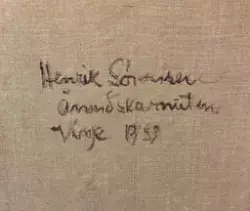 Henrik Sørensen
Ånundskarnuten
Vinje 1959